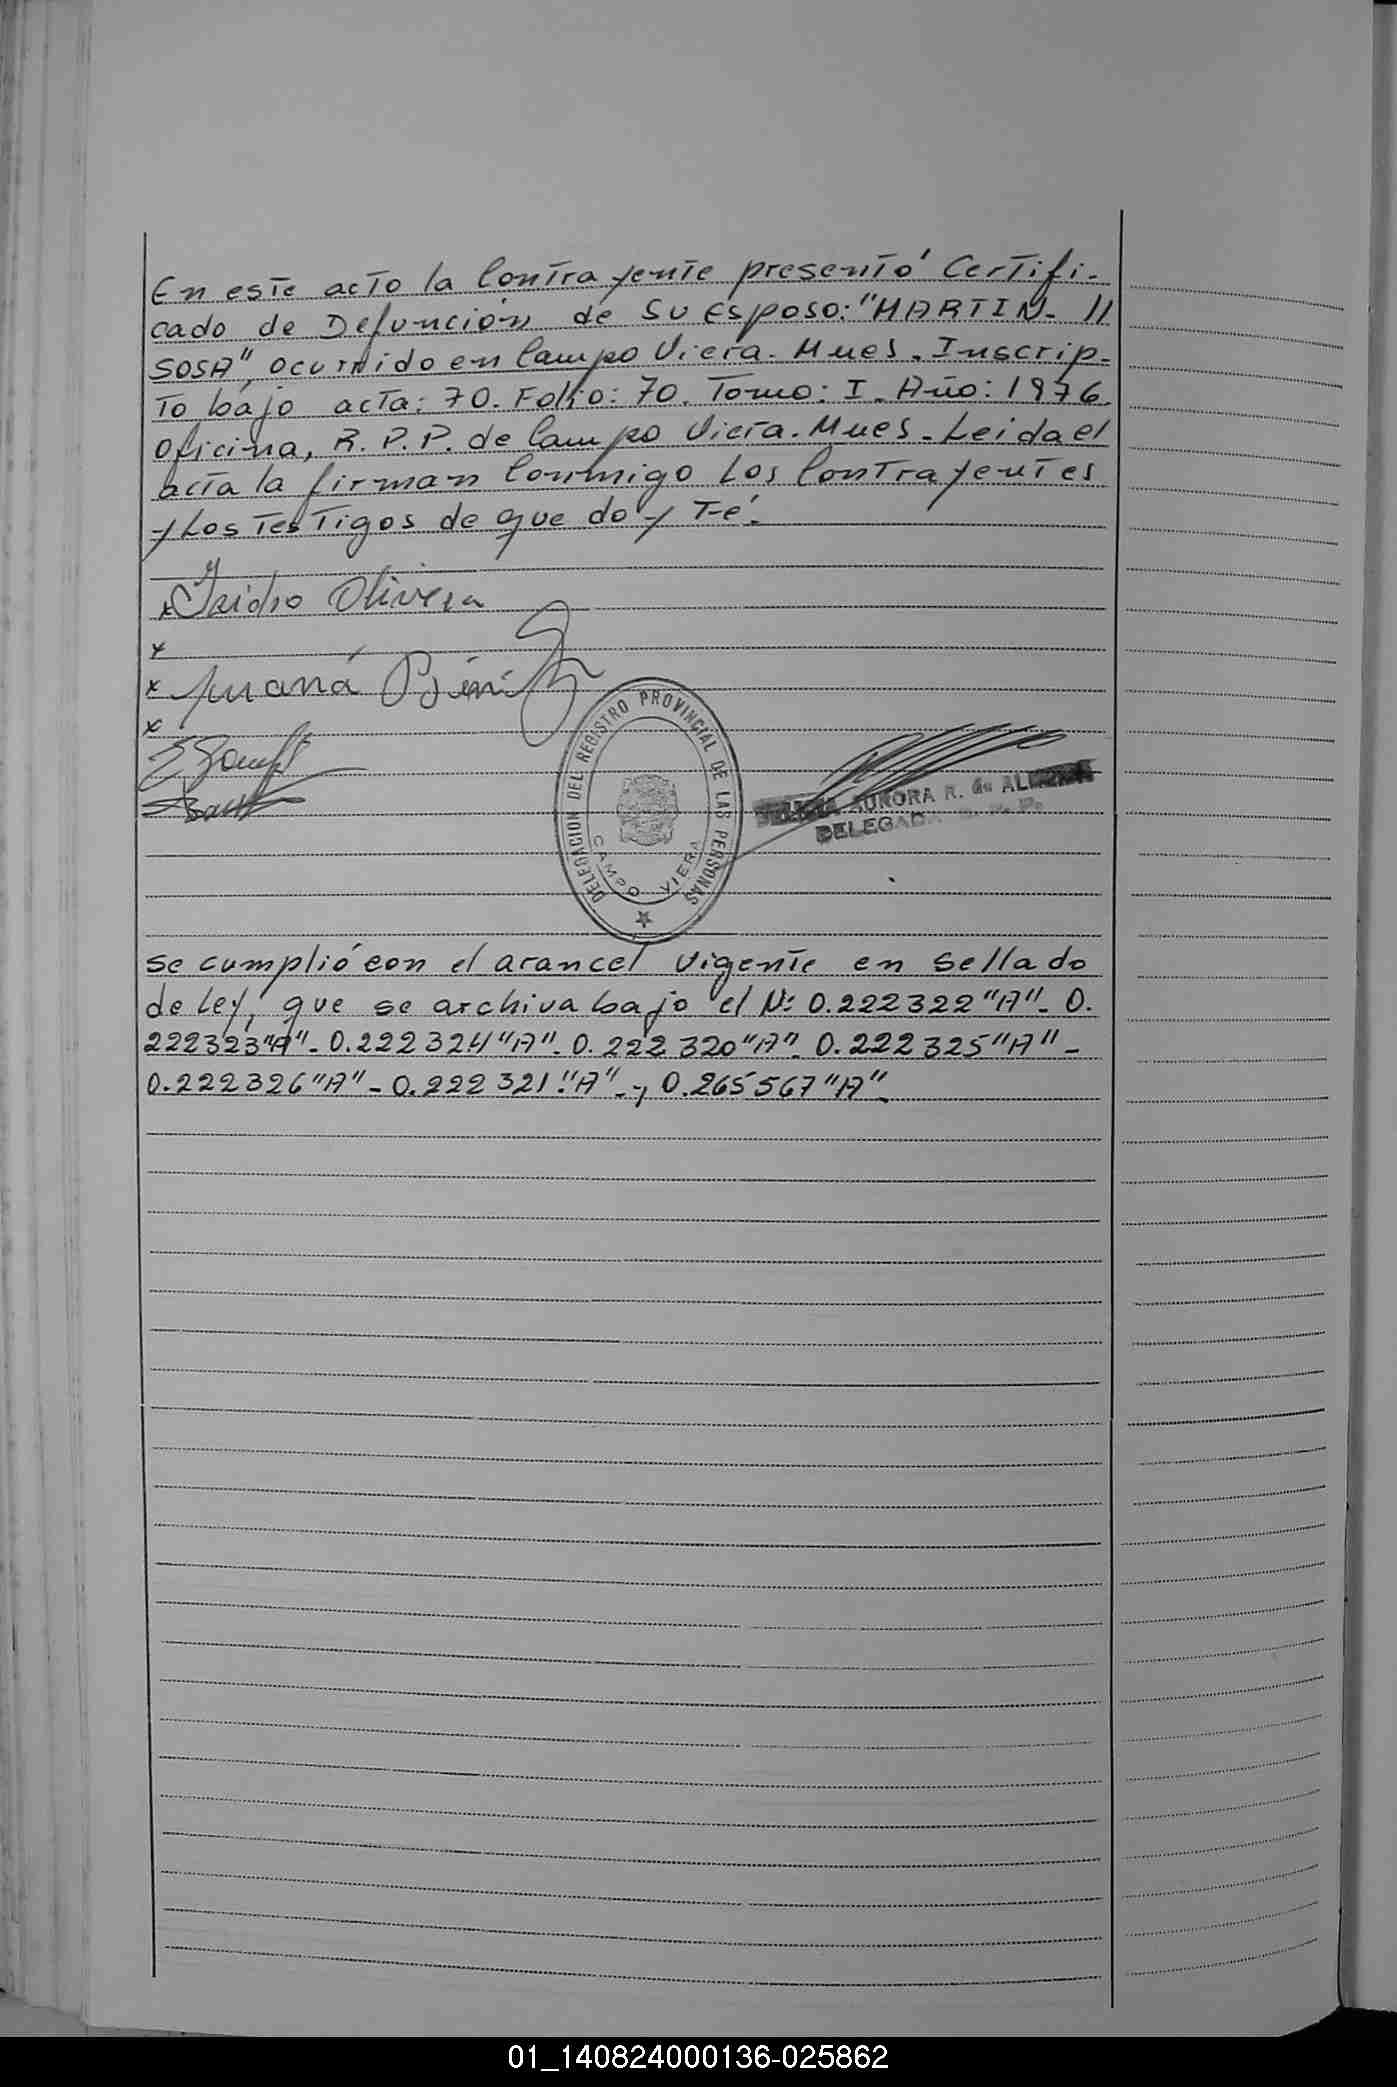 En este acto la Contrayente presentó Certifi-
cado de Defunción de su Esposo: "MARTIN- //
SOSA", ocurrido en Campo Viera. Mnes. Inscrip-
to bajo acta: 70. Folio: 70. Tomo: I. Año: 1976.
Oficina, R.P.P. de Campo Viera. Mnes. Leida el
acta la firman Conmigo Los Contrayentes
y Los Testigos de que doy Fé.
x Isidro Olivera
x
x Juaná Béniz
x
DELEGACION DEL REGISTRO PROVINCIAL DE LAS PERSONAS
CAMPO VIERA
AURORA R. de
DELEGADA
se cumplió con el arancel vigente en Sellado
de Ley, que se archiva bajo el N: 0.222322"A"- 0.
222323"A"- 0.222324"A"- 0.222320"A"- 0.222325"A"-
0.222326"A"- 0.222321."A"- y 0.265567"A".
01_140824000136-025862